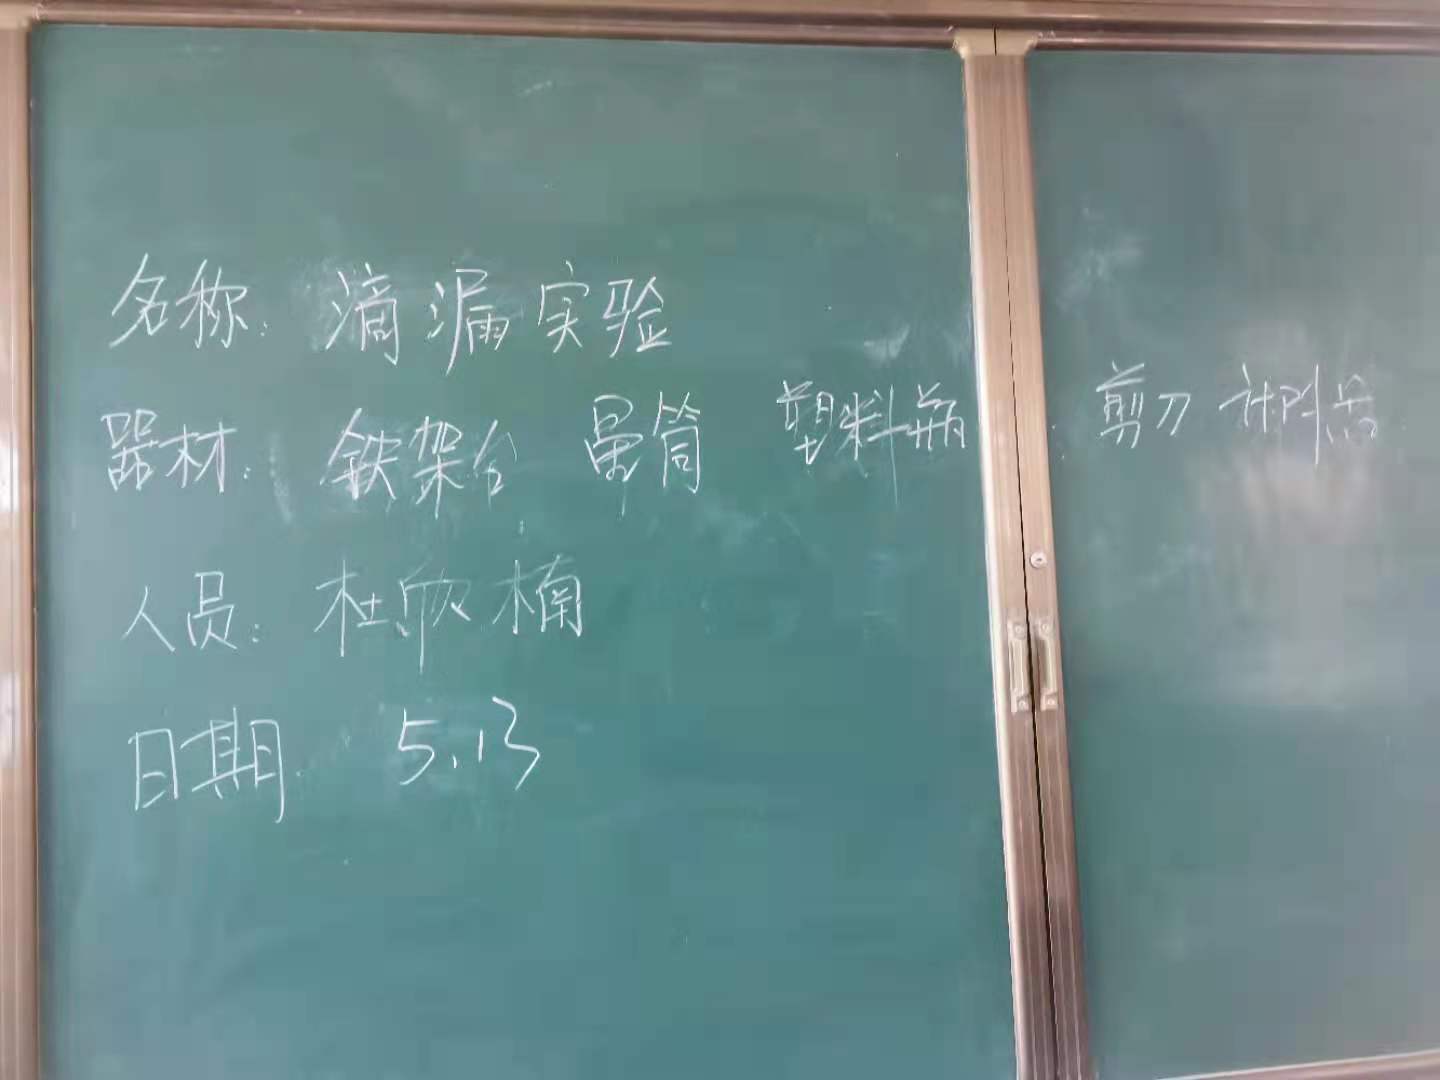 名称: 滴漏实验
器材: 铁架台 量筒 塑料瓶 剪刀 计时器
人员: 杜欣楠
日期: 5.13